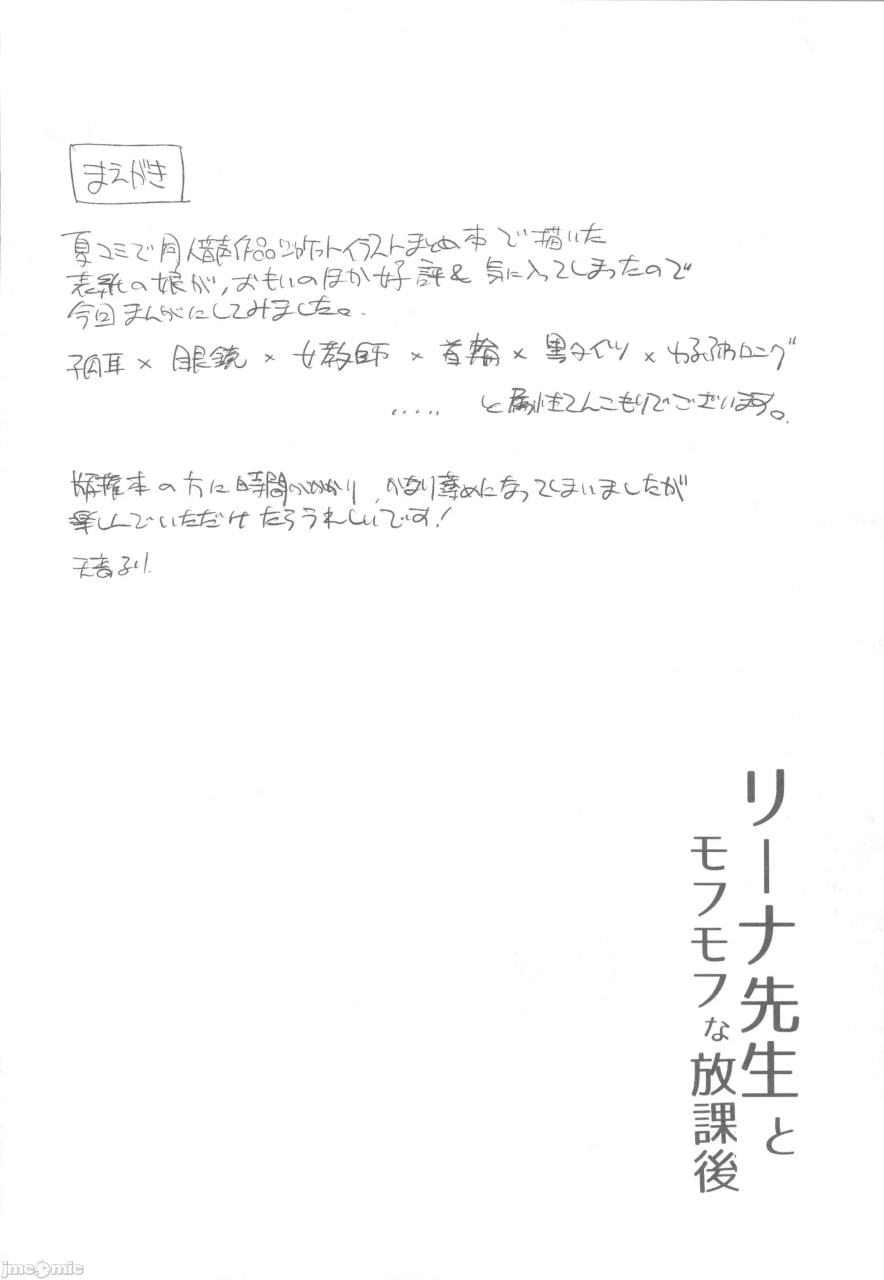 まえがき
夏コミで同人音声作品ジャケットイラストまとめ本で描いた
表紙の娘が、おもいのほか好評&気に入ってしまったので
今回まんがにしてみました。
狐耳×眼鏡×女教師×首輪×黒タイツ×ゆるふわロング
.....と属性てんこもりでございます。
本の方に時間がかかり、かなり薄めになってしまいましたが
楽しんでいただけたらうれしいです!
天音るり
リーナ先生と
モフモフな放課後
jmcomic